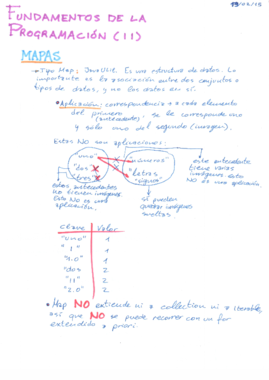 FUNDAMENTOS DE LA
PROGRAMACIÓN (II)
MAPAS
Tipo Map; Java.Util. Es una estructura de datos. Lo
importante es la asociación entre dos conjuntos o
tipos de datos, y no los datos en sí.
Aplicación: correspondencia a cada elemento
del primero se le corresponde uno
(antecedente)
y sólo uno del segundo (imagen).
Estos NO son aplicaciones:
"uno"
"dos"
"tres"
números
letras
"signos"
este antecedente
tiene varias
imágenes esto
NO es una aplicación.
estos antecedentes
no tienen imágenes
Esto NO es una
aplicación.
sí pueden
quedar imágenes
sueltas
clave Valor
"uno" 1
"1" 1
"1.0" 1
"dos" 2
"11" 2
"2.0" 2
Map NO extiende ni a collection ni a iterable,
así que NO se puede recorrer con un for
extendido a priori.